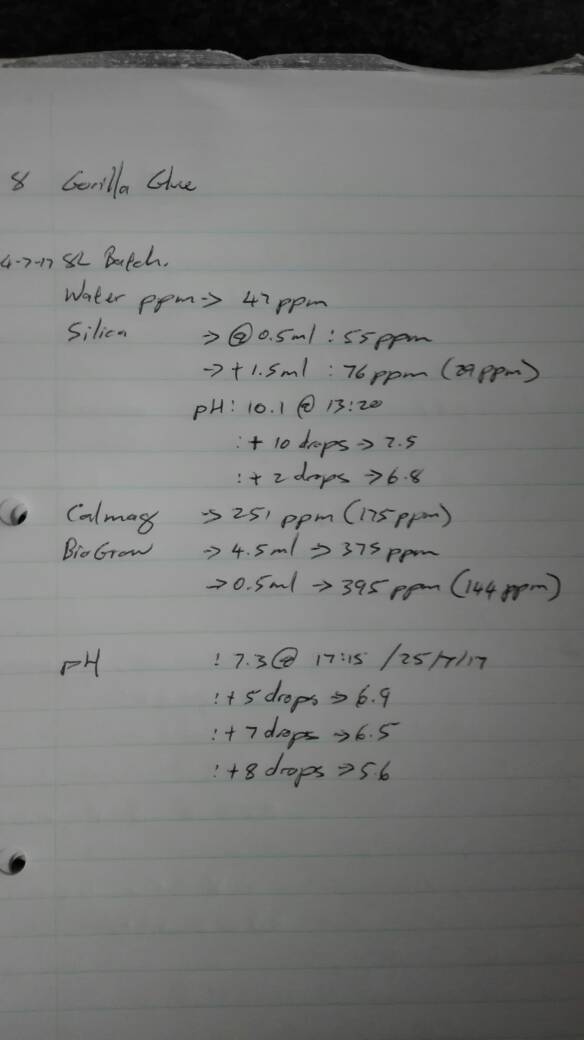 8 Gorilla Glue
4-7-17 8L Batch.
Water ppm -> 47 ppm
Silica -> @ 0.5ml : 55ppm
-> + 1.5ml : 76ppm (29ppm)
pH: 10.1 @ 13:20
: + 10 drops -> 7.5
: + 2 drops -> 6.8
Calmag -> 251 ppm (175ppm)
BioGrow -> 4.5ml -> 375ppm
-> 0.5ml -> 395ppm (144ppm)
pH : 7.3 @ 17:15 /25/7/17
: + 5 drops -> 6.9
: + 7 drops -> 6.5
: + 8 drops -> 5.6